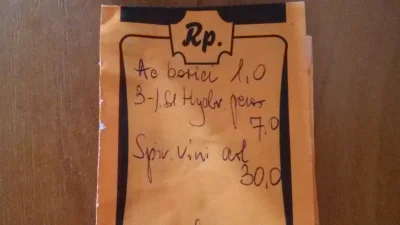 Rp.
Ac borici 1,0
3-%. Sol Hydr. peror
7,0
Spir. vini ad
30,0